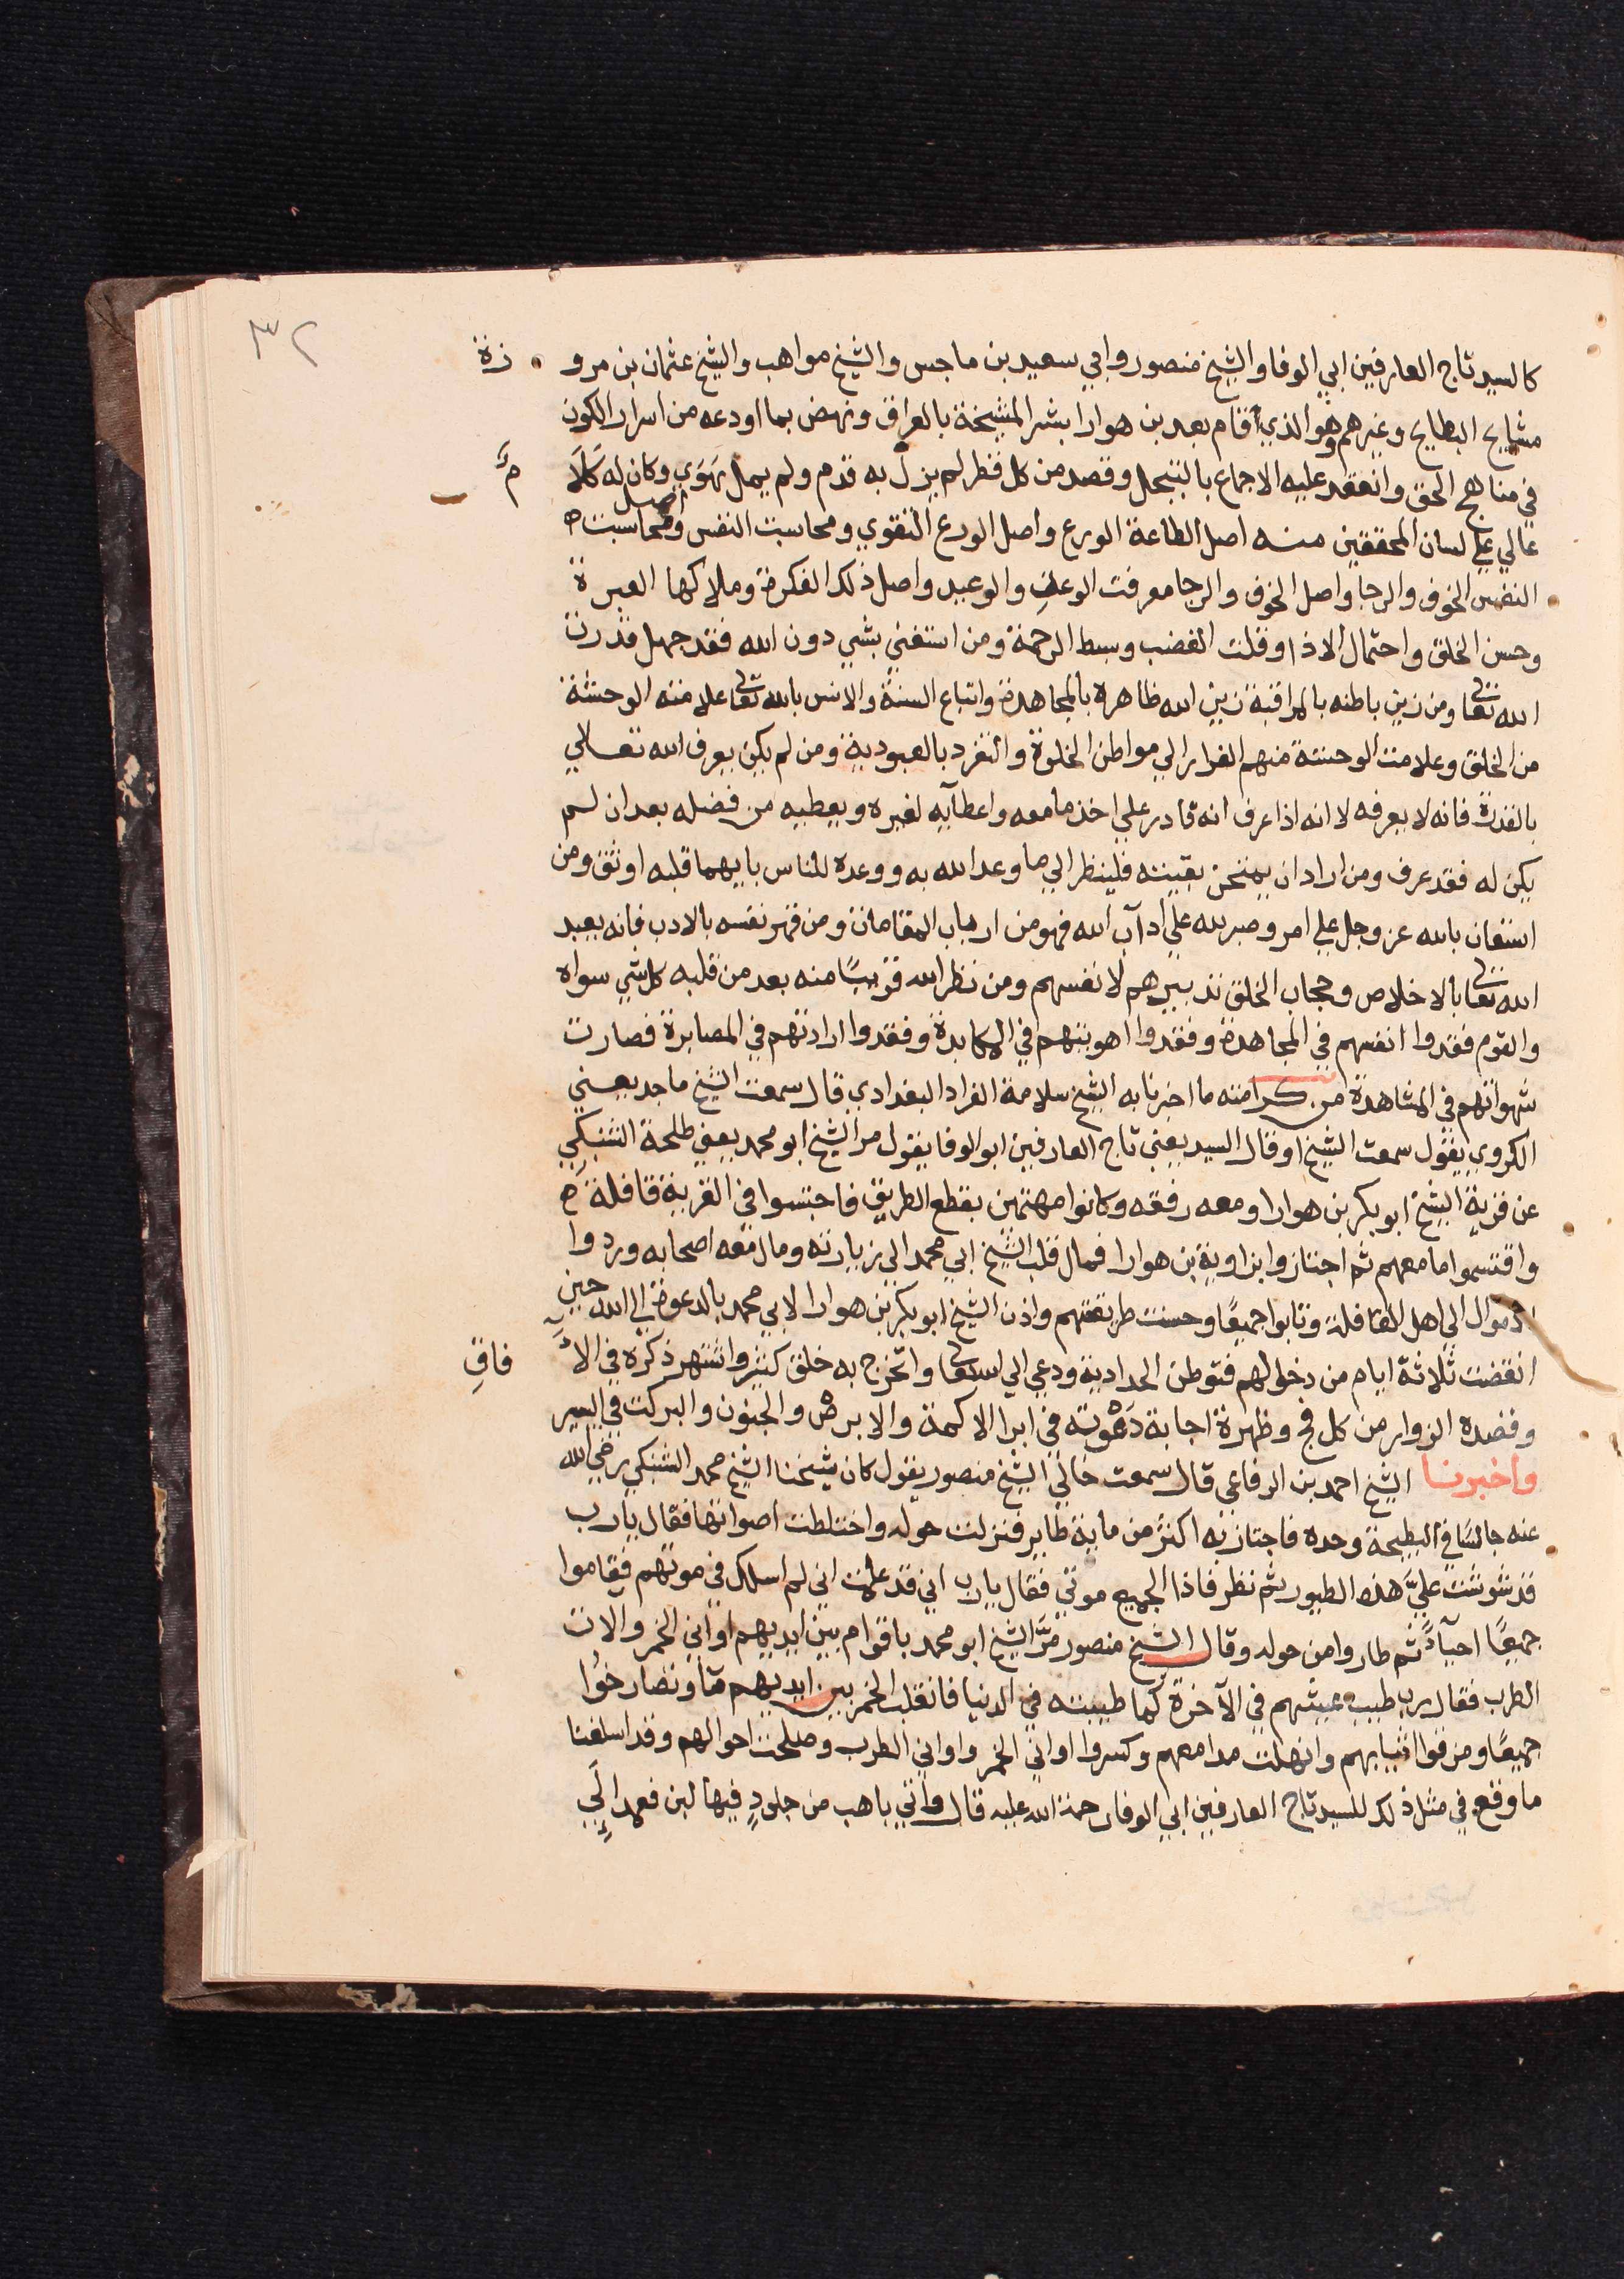 ٣٢
كالسيد تاج العارفين ابي الوفا والشيخ منصور وابي سعيد بن ماجس والشيخ مواهب والشيخ عثمان بن مرو زة
مشايخ البطايح وغيرهم وهو الذي اقام بعد بن هوارا بشر المشيخة بالعراق ونهض بما اودعه من اسرار الكون
في مناهج الحق وانعقد عليه الاجماع بالتبجل وقصد من كل قطر لم يزل به قدم ولم يمل بهوي وكان له كلا م
عالي علي لسان المحققين منه اصل الطاعة الورع واصل الورع التقوي ومحاسبت النفس واصل محاسبت
النفس الخوف والرجا واصل الخوف والرجا معرفت الوعد والوعيد واصل ذلك الفكرة وملاكها العبرة
وحسن الخلق واحتمال الاذا وقلت الغضب وبسط الرحمة ومن استغني بشي دون الله فقد جهل قدرت
الله تعالى ومن زين باطنه بالمراقبة زين الله ظاهره بالمجاهدة واتباع السنة والانس بالله تعالى علامته الوحشة
من الخلق وعلامت الوحشة منهم الفرار الي مواطن الخلوة والتفرد بالعبودية ومن لم يكن يعرف الله تعالي
بالقدرة فانه لا يعرفه لانه اذا عرف انه قادر علي اخذ ما معه واعطآيه لغيره ويعطيه من فضله بعد ان لم
يكن له فقد عرف ومن اراد ان يمتحن يقينه فلينظر الي ما وعد الله به ووعده للناس بايهما قلبه اوثق ومن
استعان بالله عز وجل علي امر وصبر لله علي ادآب الله فهو من ارباب المقامات ومن قهر نفسه بالادب فانه يعبد
الله تعالى بالاخلاص وحجاب الخلق تدبيرهم لانفسهم ومن نظر الله قريبًا منه بعد من قلبه كل شي سواه
والقوم فقدوا انفسهم في المجاهدة وفقدوا اهويتهم في المكابدة وفقدوا ارادتهم في المصابرة فصارت
شهواتهم في المشاهدة من كرامته ما اخبرنا به الشيخ سلامة الفراد البغدادي قال سمعت الشيخ ماجد يعني
الكروي يقول سمعت الشيخ او قال السيد يعني تاج العارفين ابو الوفا يقول مر الشيخ ابو محمد يعني طلحة الشنبكي
عن قرية الشيخ ابو بكر بن هوارا ومعه رفقه وكانوا مهتمين بقطع الطريق فاحتبسوا في القرية قافلة
واقتسموا ما معهم ثم اجتازوا بزاوية بن هوارا فمال قلب الشيخ ابي محمد الى زيارته ومال معه اصحابه وردوا
الاموال الى اهل القافلة وتابوا جميعًا وحسنت طريقتهم واذن الشيخ ابو بكر بن هوارا لابي محمد بالدعوة الى الله حين
انقضت ثلاثة ايام من دخولهم فتوطن الحدادية ودعي الي الله تعالى وتخرج به خلق كثير واشتهر ذكره في الا فاق
وقصده الزوار من كل فج وظهرة اجابة دعوته في ابرا الاكمة والابرص والجنون والبركت في اليسر
واخبرنا الشيخ احمد بن الرفاعي قال سمعت خالي الشيخ منصور يقول كان شيخنا الشيخ محمد الشنبكي رضي الله
عنه جالسًا في البطيحة وحده فاجتاز به اكثر من ماية طاير فنزلت حوله واختلطت اصواتها فقال يارب
قد شوشت عليَّ هذه الطيور ثم نظر فاذا الجميع موتي فقال يارب اني قد علمت اني لم اسلك في موتهم فقاموا
جميعًا احيآءً ثم طاروا من حوله وقال الشيخ منصور مرَّ الشيخ ابو محمد باقوام بين ايديهم اواني الخمر والات
الطرب فقال رب طيب عيشهم في الآخرة كما طيبته في الدنيا فانقلب الخمر بين ايديهم ماً وتصارخوا
جميعًا ومزقوا ثيابهم وانهملت مدامعهم وكسروا اواني الخمر واواني الطرب وصلحت احوالهم وقد اسلفنا
ما وقع في مثل ذلك للسيد تاج العارفين ابي الوفا رحمة الله عليه قال واتي باهب من جلودٍ فيها لبن فعمد الي